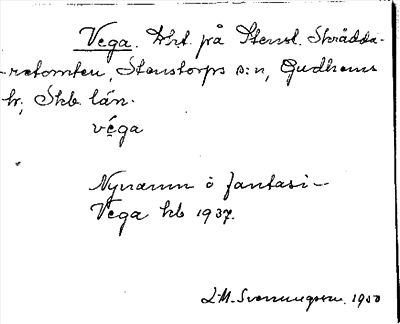 Vega. Lht. på Stensl. Skrädda-
-retomten, Stenstorps s:n, Gudhems
hr; Skb. län.
véga
Nynamn o fantasi-
Vega kb 1937.
L M. Svenungsson. 1950